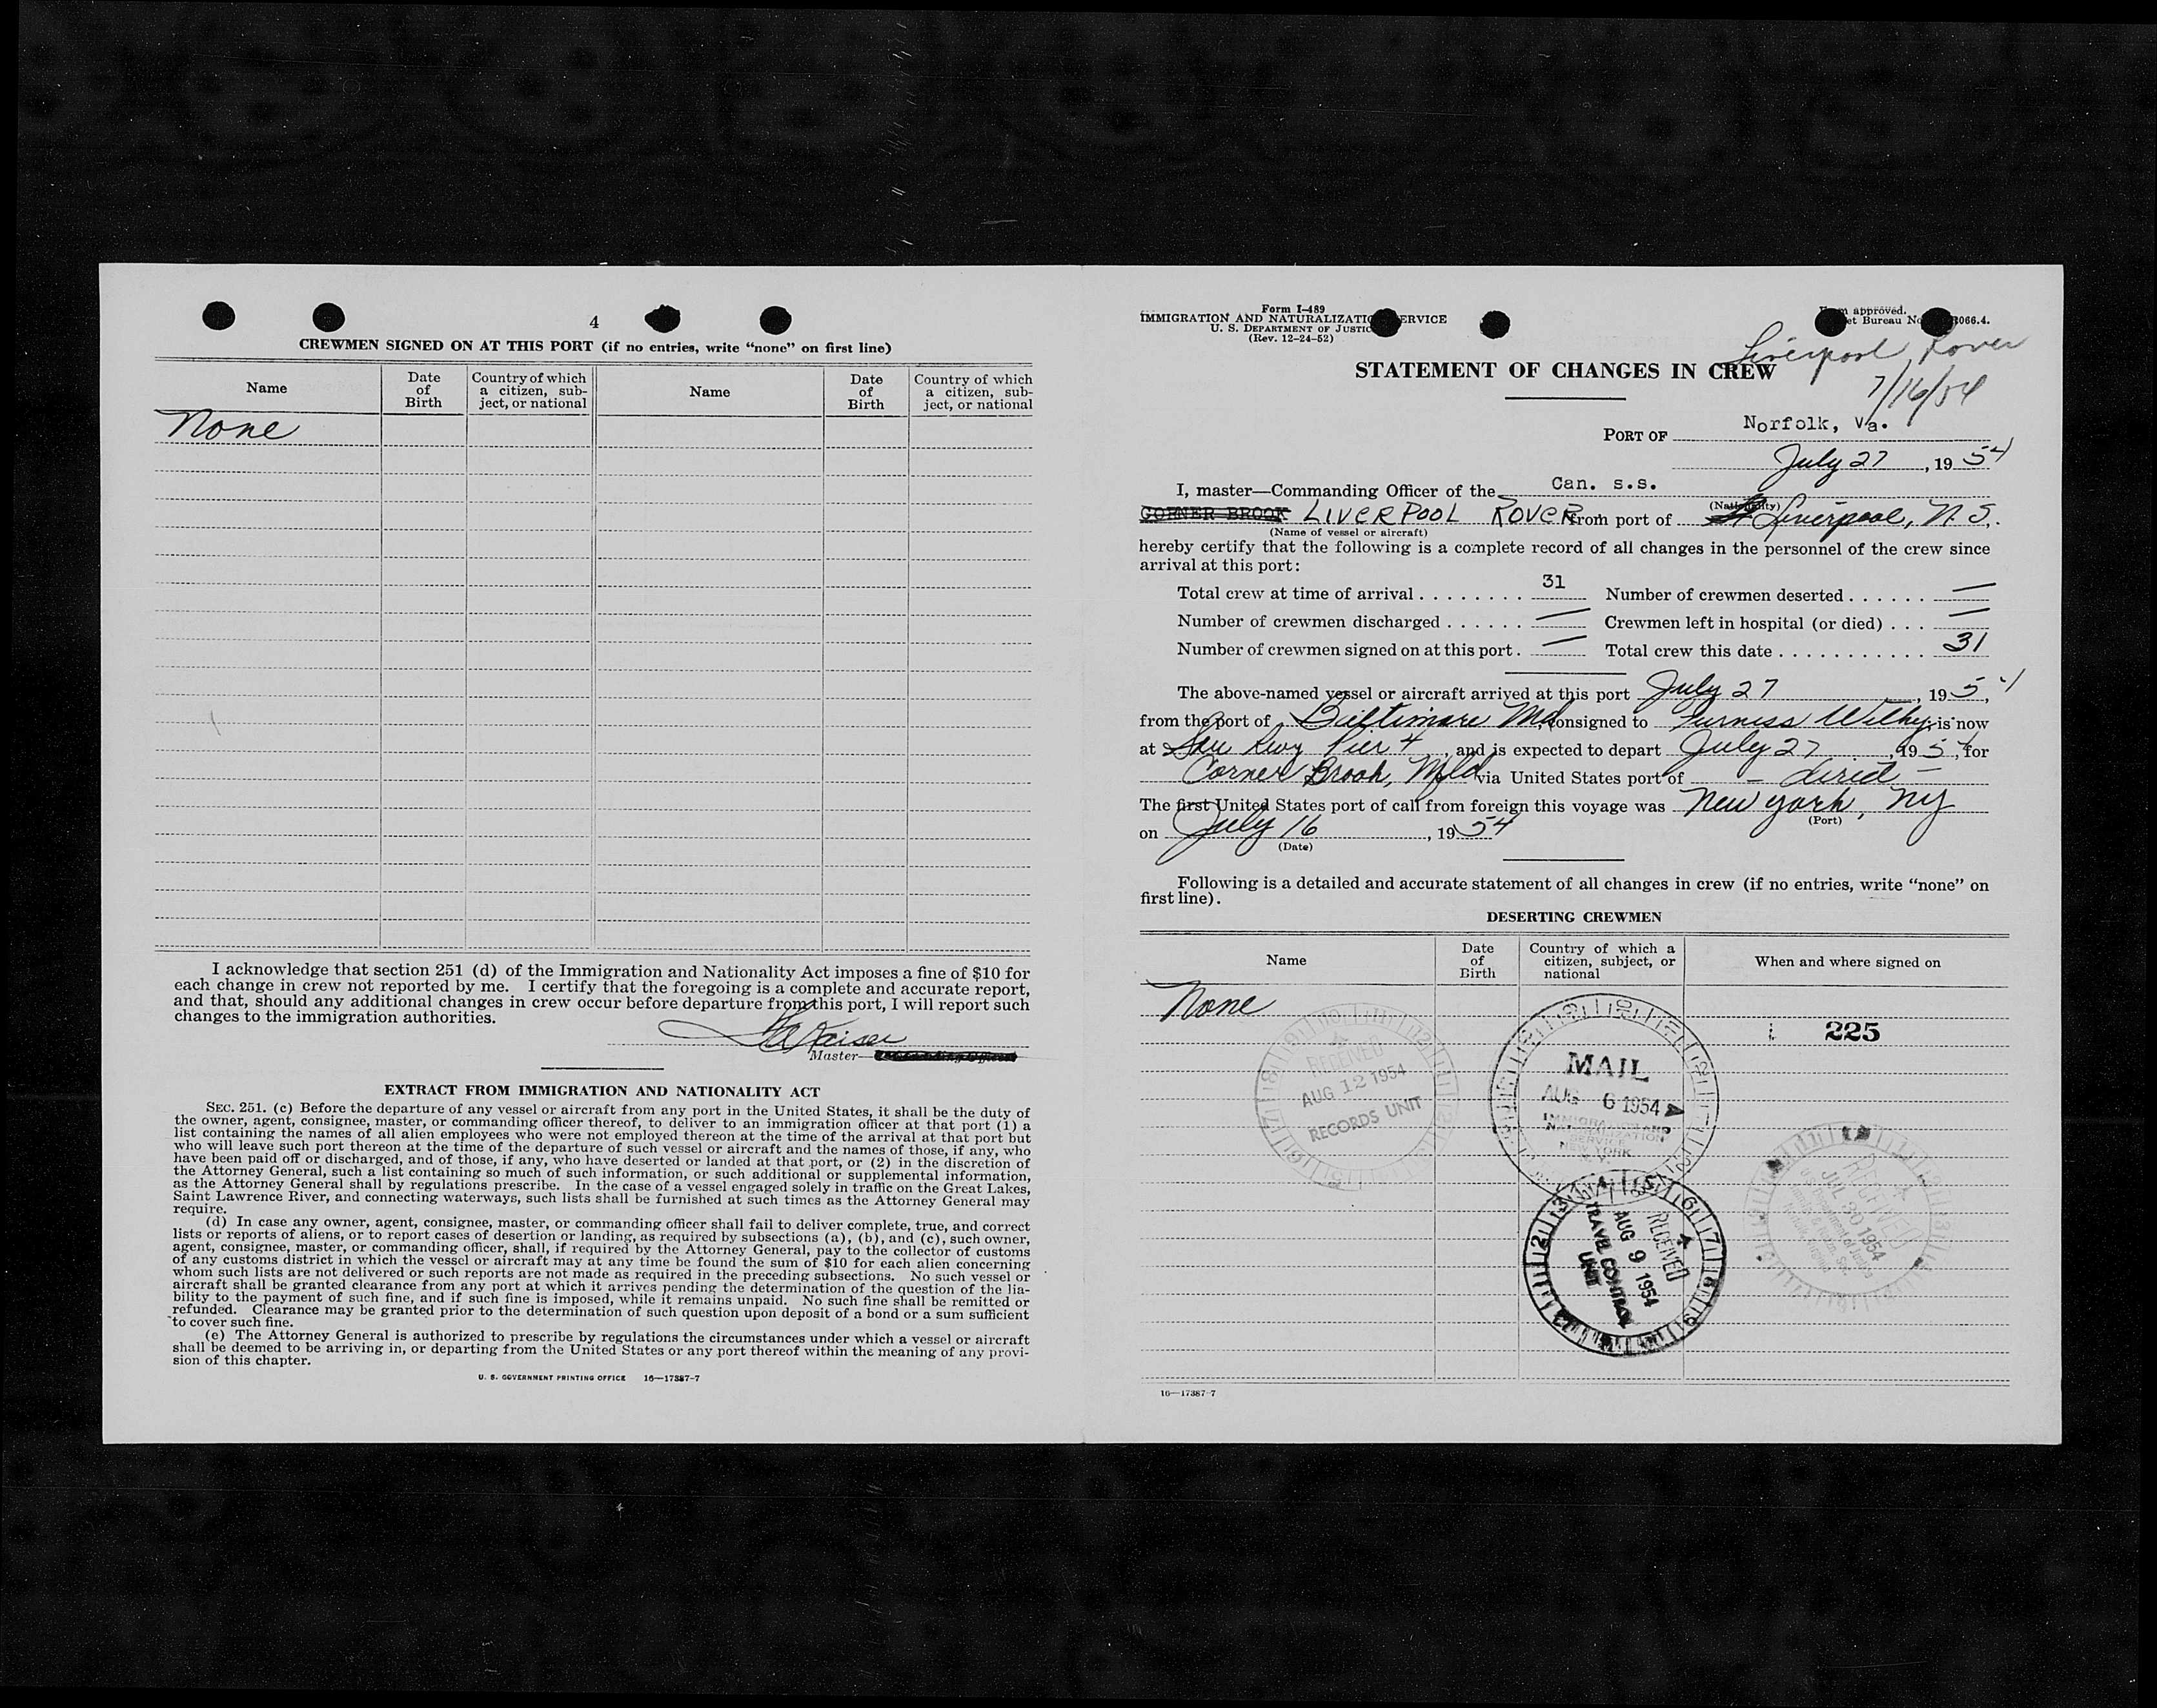 4
CREWMEN SIGNED ON AT THIS PORT (if no entries, write “none” on first line)
Name
Date of Birth
Country of which a citizen, subject, or national
Name
Date of Birth
Country of which a citizen, subject, or national
None
I acknowledge that section 251 (d) of the Immigration and Nationality Act imposes a fine of $10 for
each change in crew not reported by me. I certify that the foregoing is a complete and accurate report,
and that, should any additional changes in crew occur before departure from this port, I will report such
changes to the immigration authorities.
Master—
EXTRACT FROM IMMIGRATION AND NATIONALITY ACT
SEC. 251. (c) Before the departure of any vessel or aircraft from any port in the United States, it shall be the duty of
the owner, agent, consignee, master, or commanding officer thereof, to deliver to an immigration officer at that port (1) a
list containing the names of all alien employees who were not employed thereon at the time of the arrival at that port but
who will leave such port thereon at the time of the departure of such vessel or aircraft and the names of those, if any, who
have been paid off or discharged, and of those, if any, who have deserted or landed at that port, or (2) in the discretion of
the Attorney General, such a list containing so much of such information, or such additional or supplemental information,
as the Attorney General shall by regulations prescribe. In the case of a vessel engaged solely in traffic on the Great Lakes,
Saint Lawrence River, and connecting waterways, such lists shall be furnished at such times as the Attorney General may
require.
(d) In case any owner, agent, consignee, master, or commanding officer shall fail to deliver complete, true, and correct
lists or reports of aliens, or to report cases of desertion or landing, as required by subsections (a), (b), and (c), such owner,
agent, consignee, master, or commanding officer, shall, if required by the Attorney General, pay to the collector of customs
of any customs district in which the vessel or aircraft may at any time be found the sum of $10 for each alien concerning
whom such lists are not delivered or such reports are not made as required in the preceding subsections. No such vessel or
aircraft shall be granted clearance from any port at which it arrives pending the determination of the question of the lia-
bility to the payment of such fine, and if such fine is imposed, while it remains unpaid. No such fine shall be remitted or
refunded. Clearance may be granted prior to the determination of such question upon deposit of a bond or a sum sufficient
to cover such fine.
(e) The Attorney General is authorized to prescribe by regulations the circumstances under which a vessel or aircraft
shall be deemed to be arriving in, or departing from the United States or any port thereof within the meaning of any provi-
sion of this chapter.
U. S. GOVERNMENT PRINTING OFFICE 16—17387-7
Form I-489
IMMIGRATION AND NATURALIZATIO ERVICE
U. S. DEPARTMENT OF JUSTIC
(Rev. 12-24-52)
m approved.
et Bureau No. 066.4.
Liverpool Rover
7/16/54
STATEMENT OF CHANGES IN CREW
PORT OF Norfolk, Va.
July 27, 1954
I, master—Commanding Officer of the Can. s.s.
(Nationality)
CORNER BROOK LIVERPOOL ROVER from port of Liverpool, N.S.
(Name of vessel or aircraft)
hereby certify that the following is a complete record of all changes in the personnel of the crew since
arrival at this port:
Total crew at time of arrival . . . . . . . . 31 Number of crewmen deserted . . . . . . —
Number of crewmen discharged . . . . . . — Crewmen left in hospital (or died) . . . —
Number of crewmen signed on at this port . — Total crew this date . . . . . . . . . . . 31
The above-named vessel or aircraft arrived at this port July 27, 1954,
from the port of Baltimore Md, consigned to Furness Withy, is now
at Sou Rwy Pier 4, and is expected to depart July 27, 1954, for
Corner Brook, Nfld via United States port of — direct —
The first United States port of call from foreign this voyage was New York, NY
(Port)
on July 16, 1954
(Date)
Following is a detailed and accurate statement of all changes in crew (if no entries, write “none” on
first line).
DESERTING CREWMEN
Name
Date of Birth
Country of which a citizen, subject, or national
When and where signed on
None
225
RECEIVED
AUG 12 1954
RECORDS UNIT
MAIL
AUG 6 1954
IMMIGRATION AND
NATURALIZATION
SERVICE
NEW YORK
RECEIVED
AUG 9 1954
TRAVEL CONTROL
UNIT
RECEIVED
JUL 30 1954
16—17387-7